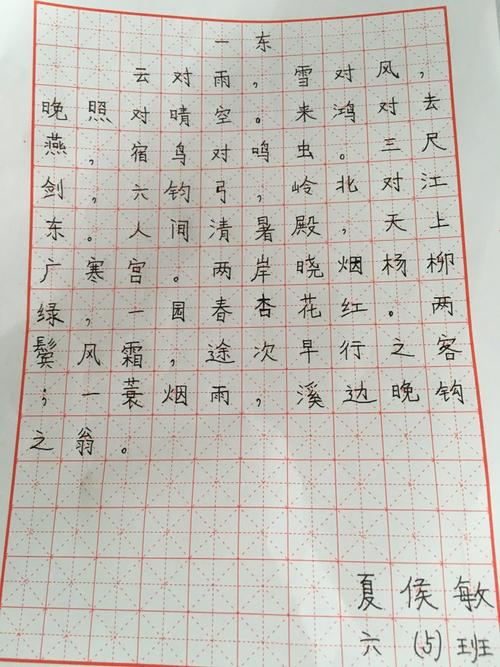 一东
云对雨，雪对风，
晚照对晴空。来鸿对去
燕，宿鸟对鸣虫。三尺
剑，六钧弓，岭北对江
东。人间清暑殿，天上
广寒宫。两岸晓烟杨柳
绿，一园春杏花红。两
鬓风霜，途次早行之客
；一蓑烟雨，溪边晚钓
之翁。
夏侯敏
六（5）班